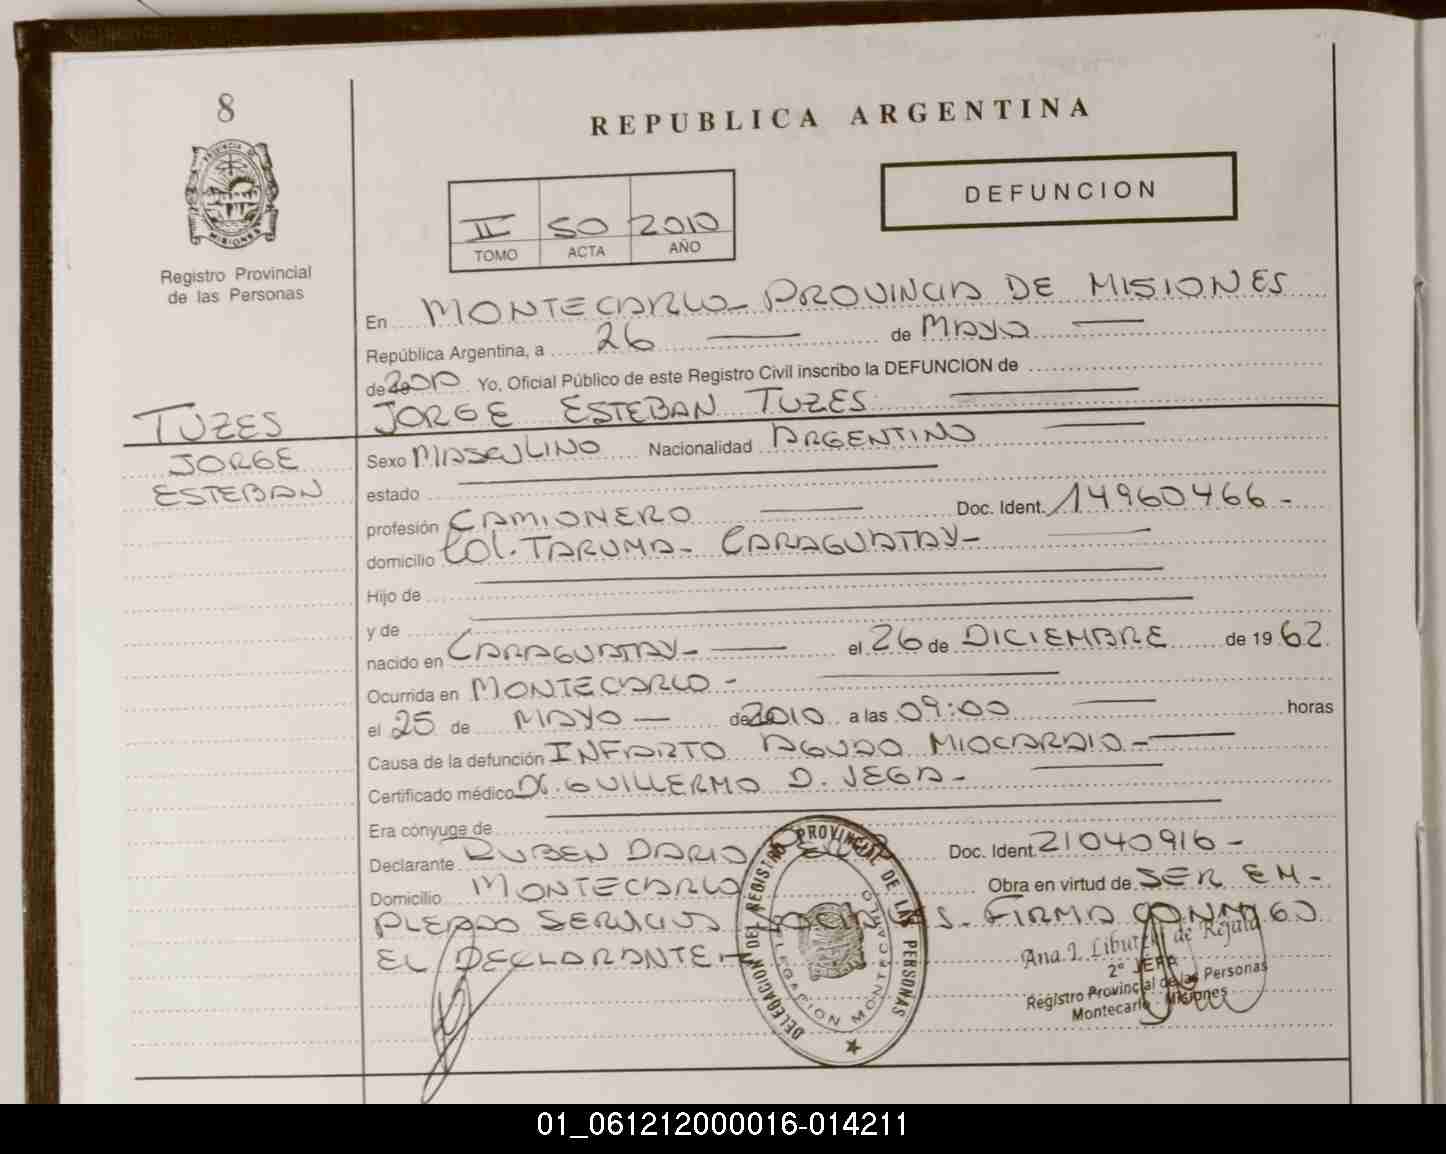 8
PROVINCIA DE
MISIONES
Registro Provincial
de las Personas
REPUBLICA ARGENTINA
DEFUNCION
II 50 2010
TOMO ACTA AÑO
En MONTECARLO - PROVINCIA DE MISIONES
República Argentina, a 26 de MAYO
de 2010 Yo, Oficial Público de este Registro Civil inscribo la DEFUNCION de
JORGE ESTEBAN TUZES
TUZES
JORGE
ESTEBAN
Sexo MASCULINO Nacionalidad ARGENTINO
estado
profesión CAMIONERO Doc. Ident. 14960466 -
domicilio COL. TARUMA - CARAGUATAY -
Hijo de
y de
nacido en CARAGUATAY - el 26 de DICIEMBRE de 19 62
Ocurrida en MONTECARLO -
el 25 de MAYO de 2010 a las 09:00 horas
Causa de la defunción INFARTO AGUDO MIOCARDIO -
Certificado médico Dr. GUILLERMO D. VEGA -
Era cónyuge de
Declarante RUBEN DARIO Doc. Ident. 21040916 -
Domicilio MONTECARLO Obra en virtud de SER EM-
PLEADO SERVICIOS - FIRMA CONMIGO
EL DECLARANTE -
DELEGACION DEL REGISTRO PROVINCIAL DE LAS PERSONAS
DELEGACION MONTECARLO
Ana I. de
2º JEFA
Registro Provincial de las Personas
Montecarlo - Misiones
01_061212000016-014211